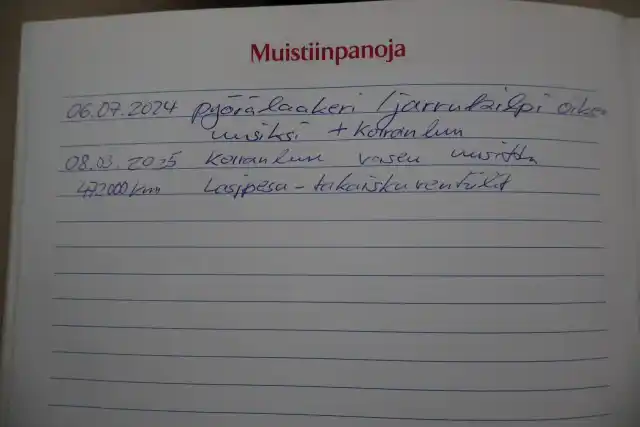 Muistiinpanoja
06.07.2024 pyörälaakeri / jarrukilpi oikea
uusiksi + Koiranluu
08.03.2025 Koiranluu vasen uusittu
472000 km Lasipesu - takaiskuventtiilit